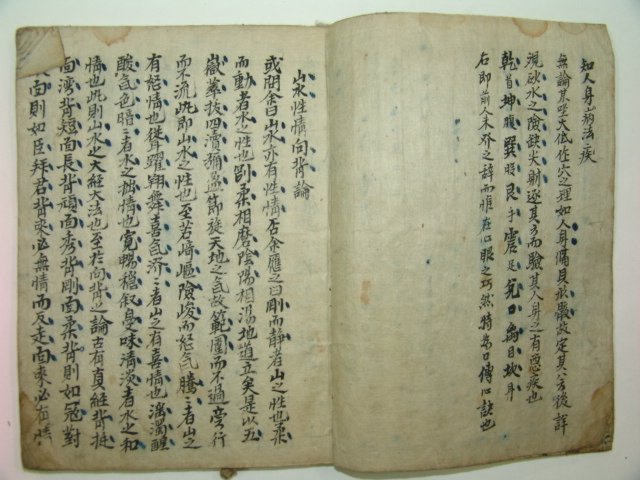 知人身病法疾
無論某坐大低作穴之理如人身滿具於股故定其八方後詳
視砂水之險缺尖射逐其方而驗其人身之有悪疾也
乾首坤腹巽股艮手震足兌口离目坎耳
右即前人未發之辞而惟在心眼之巧然特為口傳心訣也
山水性情向背論
或問余曰山水亦有性情否余應之曰剛而静者山之性也柔
而動者水之性也剛柔相磨陰陽相湯地道立矣是以五
嶽聳拔四瀆彌 節旋天地之气故範圍而不過旁行
而不流此即山水之性也至若崎嶇險峻而怒气騰〻者山之
有怒情也聳躍翔舞喜气 〻者山之有喜情也 濁醒
酸气色暗〻者水之拙情也寬暢穩叙 味清淡者水之和
情也此則山水之大經大法也至於向背之論古有真經背挺
面湾背短面長背頑面秀背剛面柔背則如冠對
面則如臣拜君背來必無情而反走面來必有情